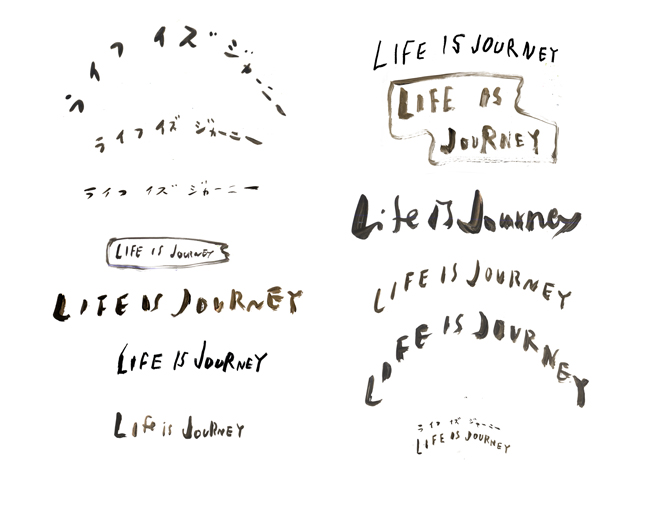 ライフ イズ ジャーニー
ライフ イズ ジャーニー
ライフ イズ ジャーニー
LIFE IS JOURNEY
LIFE IS JOURNEY
LIFE IS JOURNEY
Life is JOURNEY
LIFE IS JOURNEY
LIFE IS
JOURNEY
Life IS Journey
LIFE IS JOURNEY
LIFE IS JOURNEY
ライフ イズ ジャーニー
LIFE IS JOURNEY